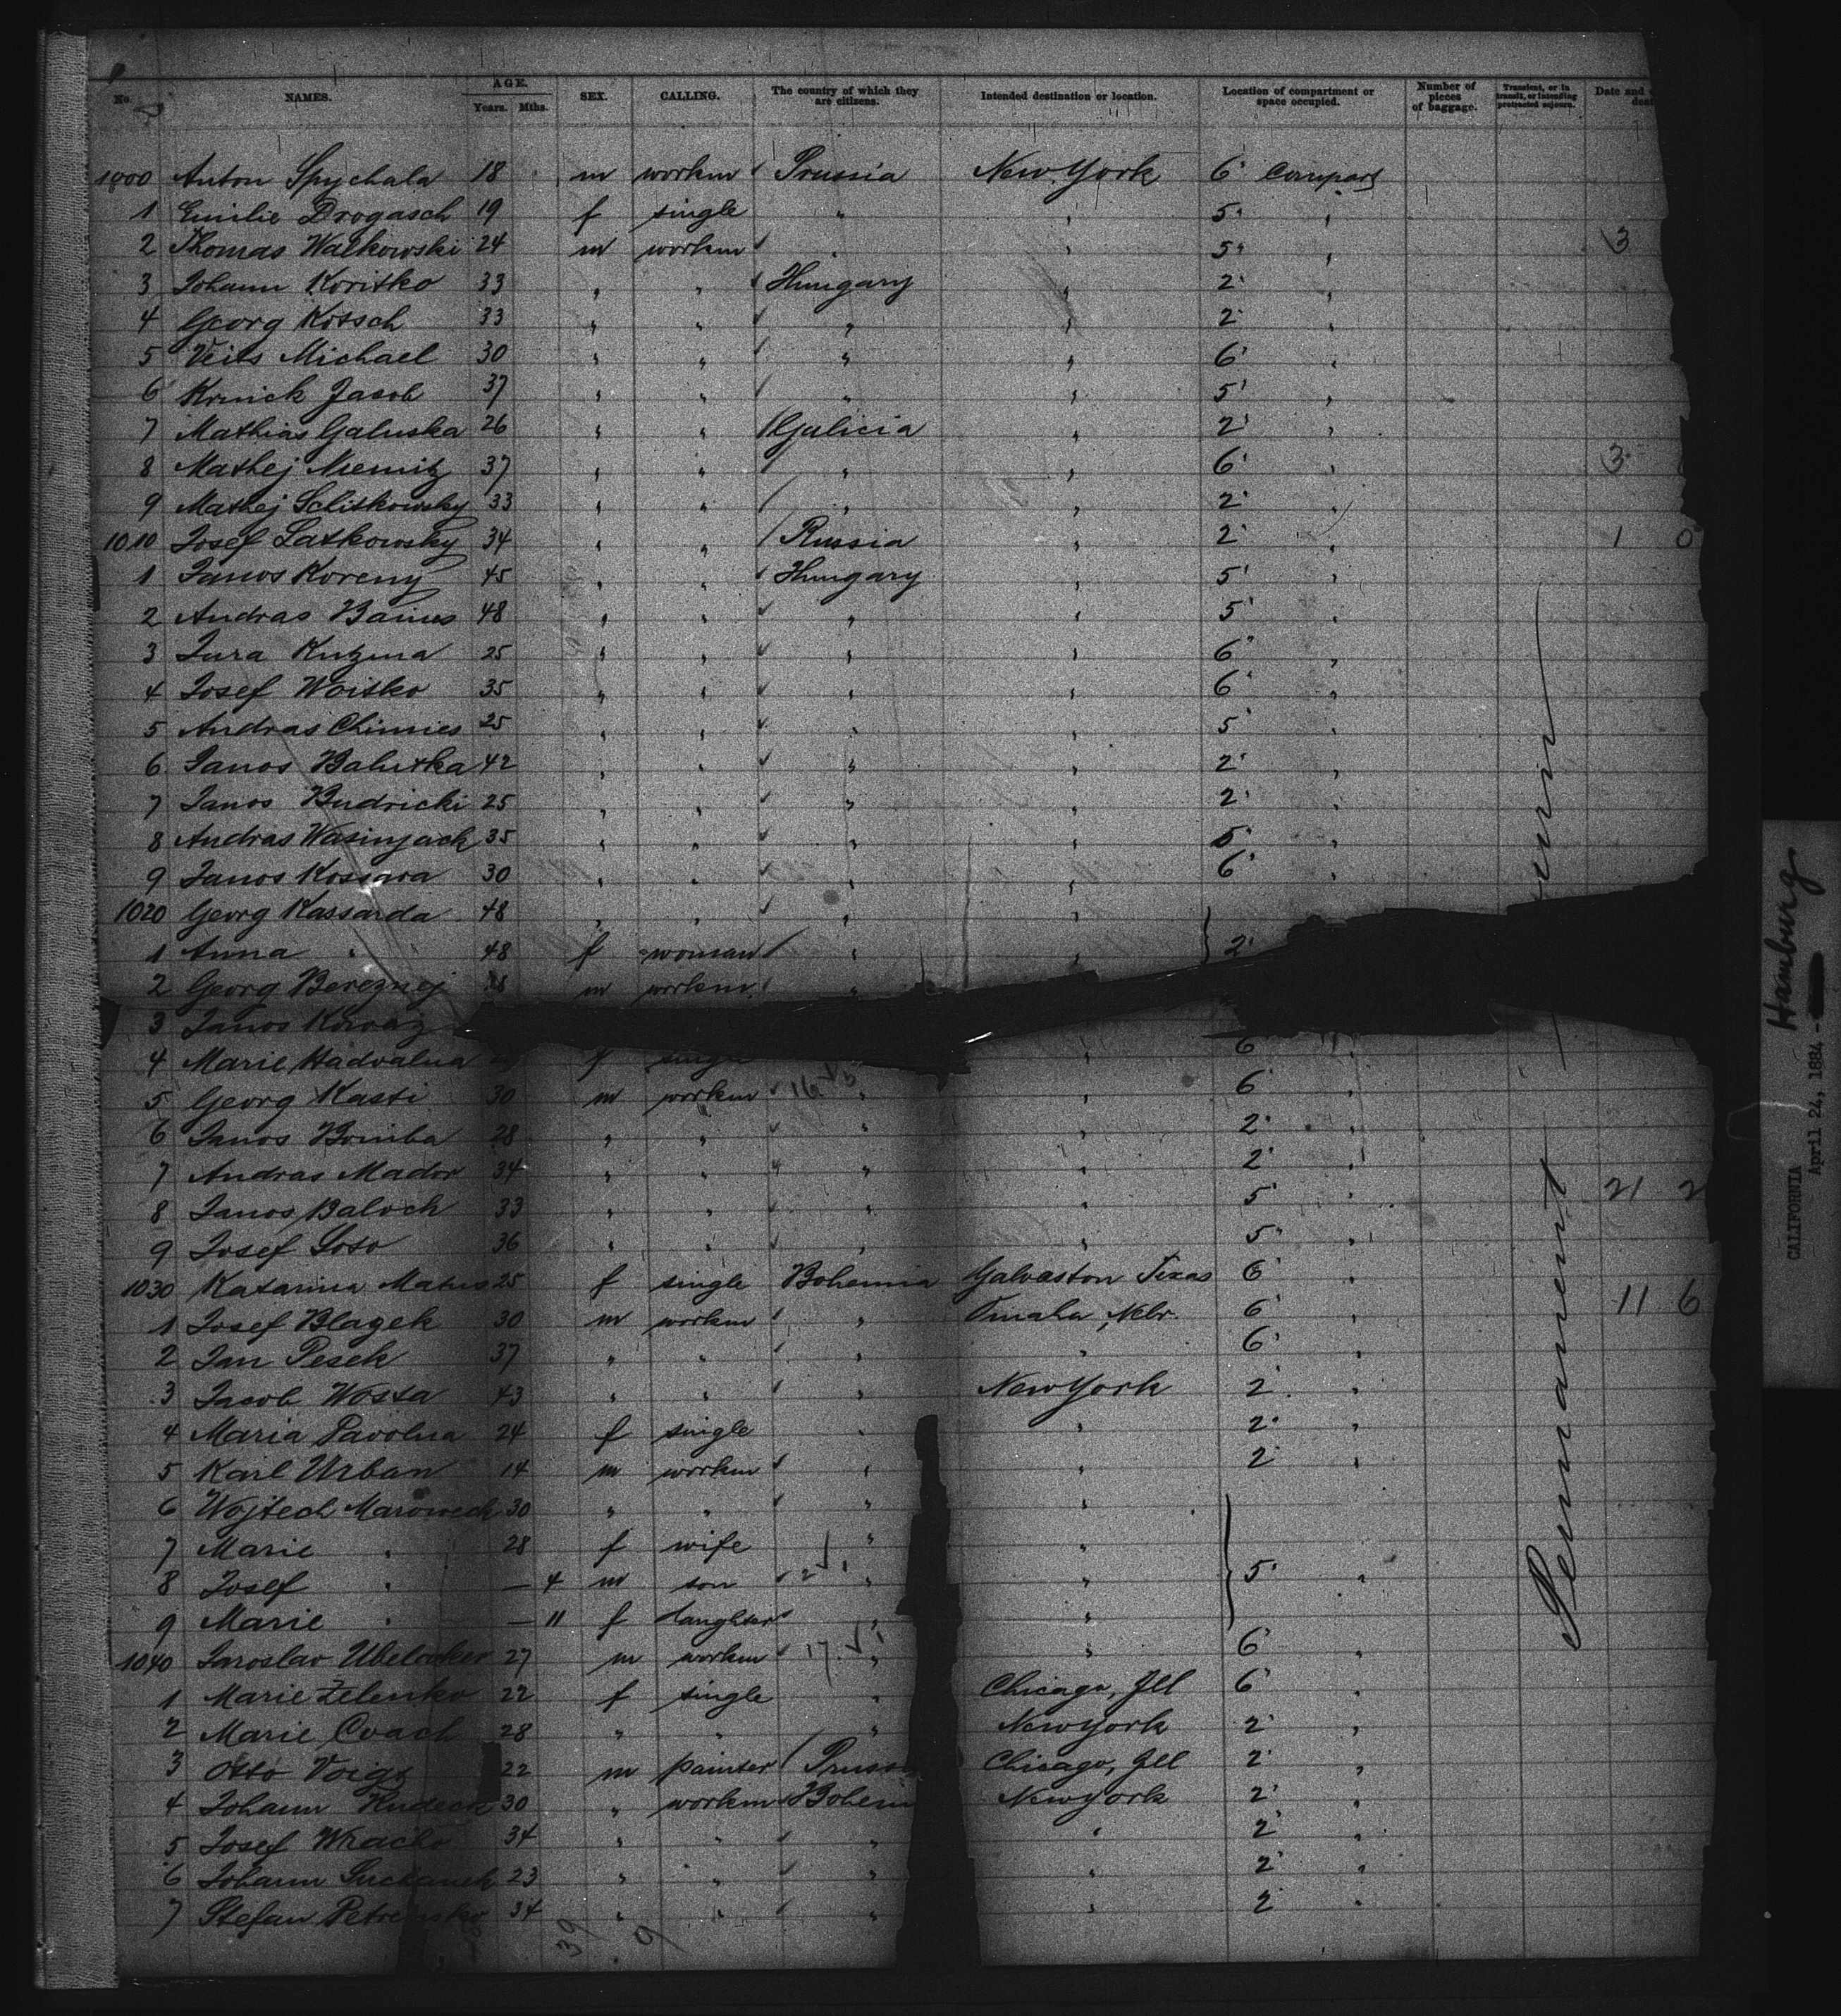 No. NAMES. AGE. Years. Mths. SEX. CALLING. The country of which they are citizens. Intended destination or location. Location of compartment or space occupied. Number of pieces of baggage. Transient, or in transit, or intending protracted sojourn. Date and
1000 Anton Spychala 18 m workm Prussia New York 6' Compart
1 Emilie Drogasch 19 f single " " 5' "
2 Thomas Walkowski 24 m workm " " 5' " 3
3 Johann Koritko 33 " " Hungary " 2' "
4 Georg Kotsch 33 " " " " 2' "
5 Veits Michael 30 " " " " 6' "
6 Krnick Jacob 37 " " " " 5' "
7 Mathias Galuska 26 " " Galicia " 2' "
8 Mathej Niemitz 37 " " " " 6' " 3
9 Mathej Selitkowsky 33 " " " " 2' "
1010 Josef Latkowsky 34 " " Russia " 2' " 1 0
1 Janos Koreny 45 " " Hungary " 5' "
2 Andras Baines 48 " " " " 5' "
3 Jura Kuzma 25 " " " " 6' "
4 Josef Woitko 35 " " " " 6' "
5 Andras Chimies 25 " " " " 5' "
6 Janos Balutka 42 " " " " 2' "
7 Janos Budricki 25 " " " " 2' "
8 Andras Wasinjack 35 " " " " 5' "
9 Janos Kossara 30 " " " " 6' "
1020 Georg Kassarda 48 " " " "
1 Anna " 48 f woman " " 2'
2 Georg Bereznej m workm "
3 Janos Kovaz
4 Marie Hadvalna f single " 6' "
5 Georg Kasti 30 m workm " " 6' "
6 Janos Bomba 28 " " " " 2' "
7 Andras Mador 34 " " " " 2' "
8 Janos Baloch 33 " " " " 5' " 21 2
9 Josef Soso 36 " " " " 5' "
1030 Katarina Matus 25 f single Bohemia Galvaston Texas 6' "
1 Josef Blazek 30 m workm " Omaha, Nebr. 6' " 11 6
2 Jan Pesek 37 " " " " 6' "
3 Jacob Wossa 43 " " " New York 2' "
4 Maria Pavolna 24 f single " " 2' "
5 Karl Urban 14 m workm " " 2' "
6 Wojtech Maroweck 30 " " " "
7 Marie " 28 f wife " "
8 Josef " — 4 m son " " 5' "
9 Marie " — 11 f daughter " "
1040 Jaroslav Ubelocker 27 m workm " " 6' "
1 Marie Zelenko 22 f single " Chicago, Ill 6' "
2 Marie Cvach 28 " " " New York 2' "
3 Otto Voigt 22 m painter Pruss Chicago, Ill 2' "
4 Johann Kudeck 30 " workm Bohem New York 2' "
5 Josef Wracho 34 " " " " 2' "
6 Johann 23 " " " " 2' "
7 Stefan Petrensko 34 " " " " 2' "
39 9
Permanent
Hamburg
CALIFORNIA
April 24, 1884 -